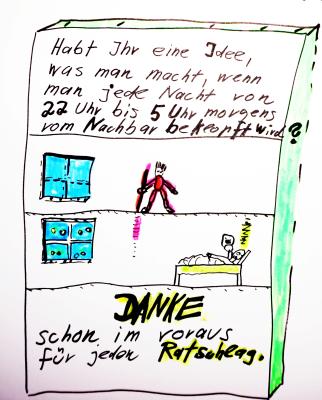 Habt Ihr eine Idee,
was man macht, wenn
man jede Nacht von
22 Uhr bis 5 Uhr morgens
vom Nachbar bekopft wird?
DANKE
schon im voraus
für jeden Ratschlag.